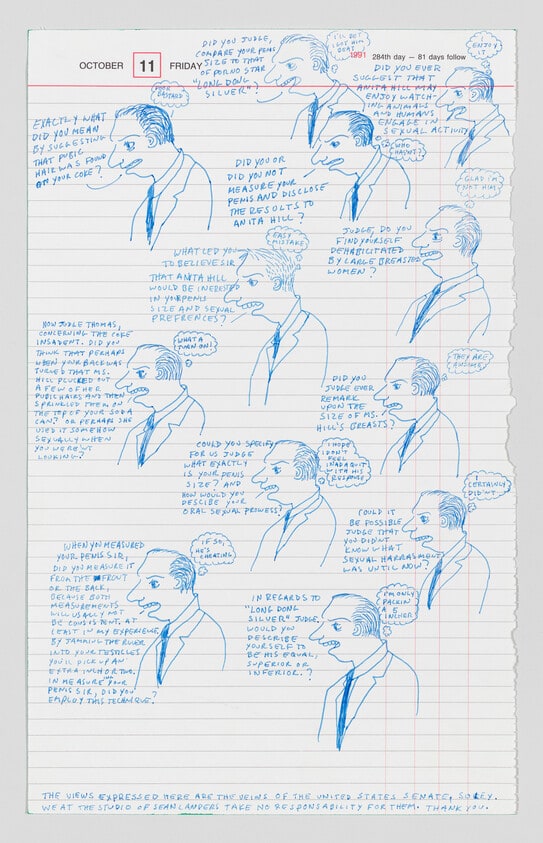 OCTOBER 11 FRIDAY
1991 284th day — 81 days follow
DID YOU JUDGE,
COMPARE YOUR PENIS
SIZE TO THAT
OF PORNO STAR
"LONG DONG
SILVER"?
I'LL BET
HAS HIM
BEAT!
I
ENJOY
IT
DID YOU EVER
SUGGEST THAT
ANITA HILL MAY
ENJOY WATCH-
ING ANIMALS
AND HUMANS
ENGAGE IN
SEXUAL ACTIVITY
POOR
BASTARD
EXACTLY WHAT
DID YOU MEAN
BY SUGGESTING
THAT PUBIC
HAIR WAS FOUND
ON YOUR COKE?
WHO
HASN'T?
DID YOU OR
DID YOU NOT
MEASURE YOUR
PENIS AND DISCLOSE
THE RESULTS TO
ANITA HILL?
GLAD I'M
NOT HIM
JUDGE, DO YOU
FIND YOURSELF
DEHABILITATED
BY LARGE BREASTED
WOMEN?
EASY
MISTAKE
WHAT LED YOU
TO BELIEVE SIR
THAT ANITA HILL
WOULD BE INTERESTED
IN YOUR PENIS
SIZE AND SEXUAL
PREFRENCES?
NOW JUDGE THOMAS,
CONCERNING THE COKE
INSADENT. DID YOU
THINK THAT PERHAPS
WHEN YOUR BACK WAS
TURNED THAT MS.
HILL PLUCKED OUT
A FEW OF HER
PUBIC HAIRS AND THEN
SPRINKLED THEM ON
THE TOP OF YOUR SODA
CAN? OR PERHAPS SHE
USED IT SOMEHOW
SEXUALLY WHEN
YOU WEREN'T
LOOKING?
WHAT A
TURN ON!
THEY ARE
DID YOU
JUDGE EVER
REMARK
UPON THE
SIZE OF MS.
HILL'S BREASTS?
COULD YOU SPECIFY
FOR US JUDGE
WHAT EXACTLY
IS YOUR PENIS
SIZE? AND
HOW WOULD YOU
DESCIBE YOUR
ORAL SEXUAL PROWESS
I HOPE
I DON'T
FEEL
INADAQUIT
WITH HIS
RESPONSE
I
CERTAINLY
DIDN'T
COULD IT
BE POSSIBLE
JUDGE THAT
YOU DIDN'T
KNOW WHAT
SEXUAL HARRASMENT
WAS UNTIL NOW?
WHEN YOU MEASURED
YOUR PENIS SIR,
DID YOU MEASURE IT
FROM THE FRONT
OR THE BACK,
BECAUSE BOTH
MEASUREMENTS
WILL USUALLY NOT
BE CONSISTENT. AT
LEAST IN MY EXPERIENCE
BY JAMMING THE RULER
INTO YOUR TESTICLES
YOU'LL PICK UP AN
EXTRA INCH OR TOO.
IN MEASURING YOUR
PENIS SIR, DID YOU
EMPLOY THIS TECNIQUE?
IF SO,
HE'S
CHEATING
I'M ONLY
PACKIN
A 5
INCHER
IN REGARDS TO
"LONG DONG
SILVER" JUDGE,
WOULD YOU
DESCRIBE
YOURSELF TO
BE HIS EQUAL,
SUPERIOR OR
INFERIOR.?
THE VIEWS EXPRESSED HERE ARE THE VEIWS OF THE UNITED STATES SENATE, SORRY.
WE AT THE STUDIO OF SEAN LANDERS TAKE NO RESPONSABILITY FOR THEM. THANK YOU.